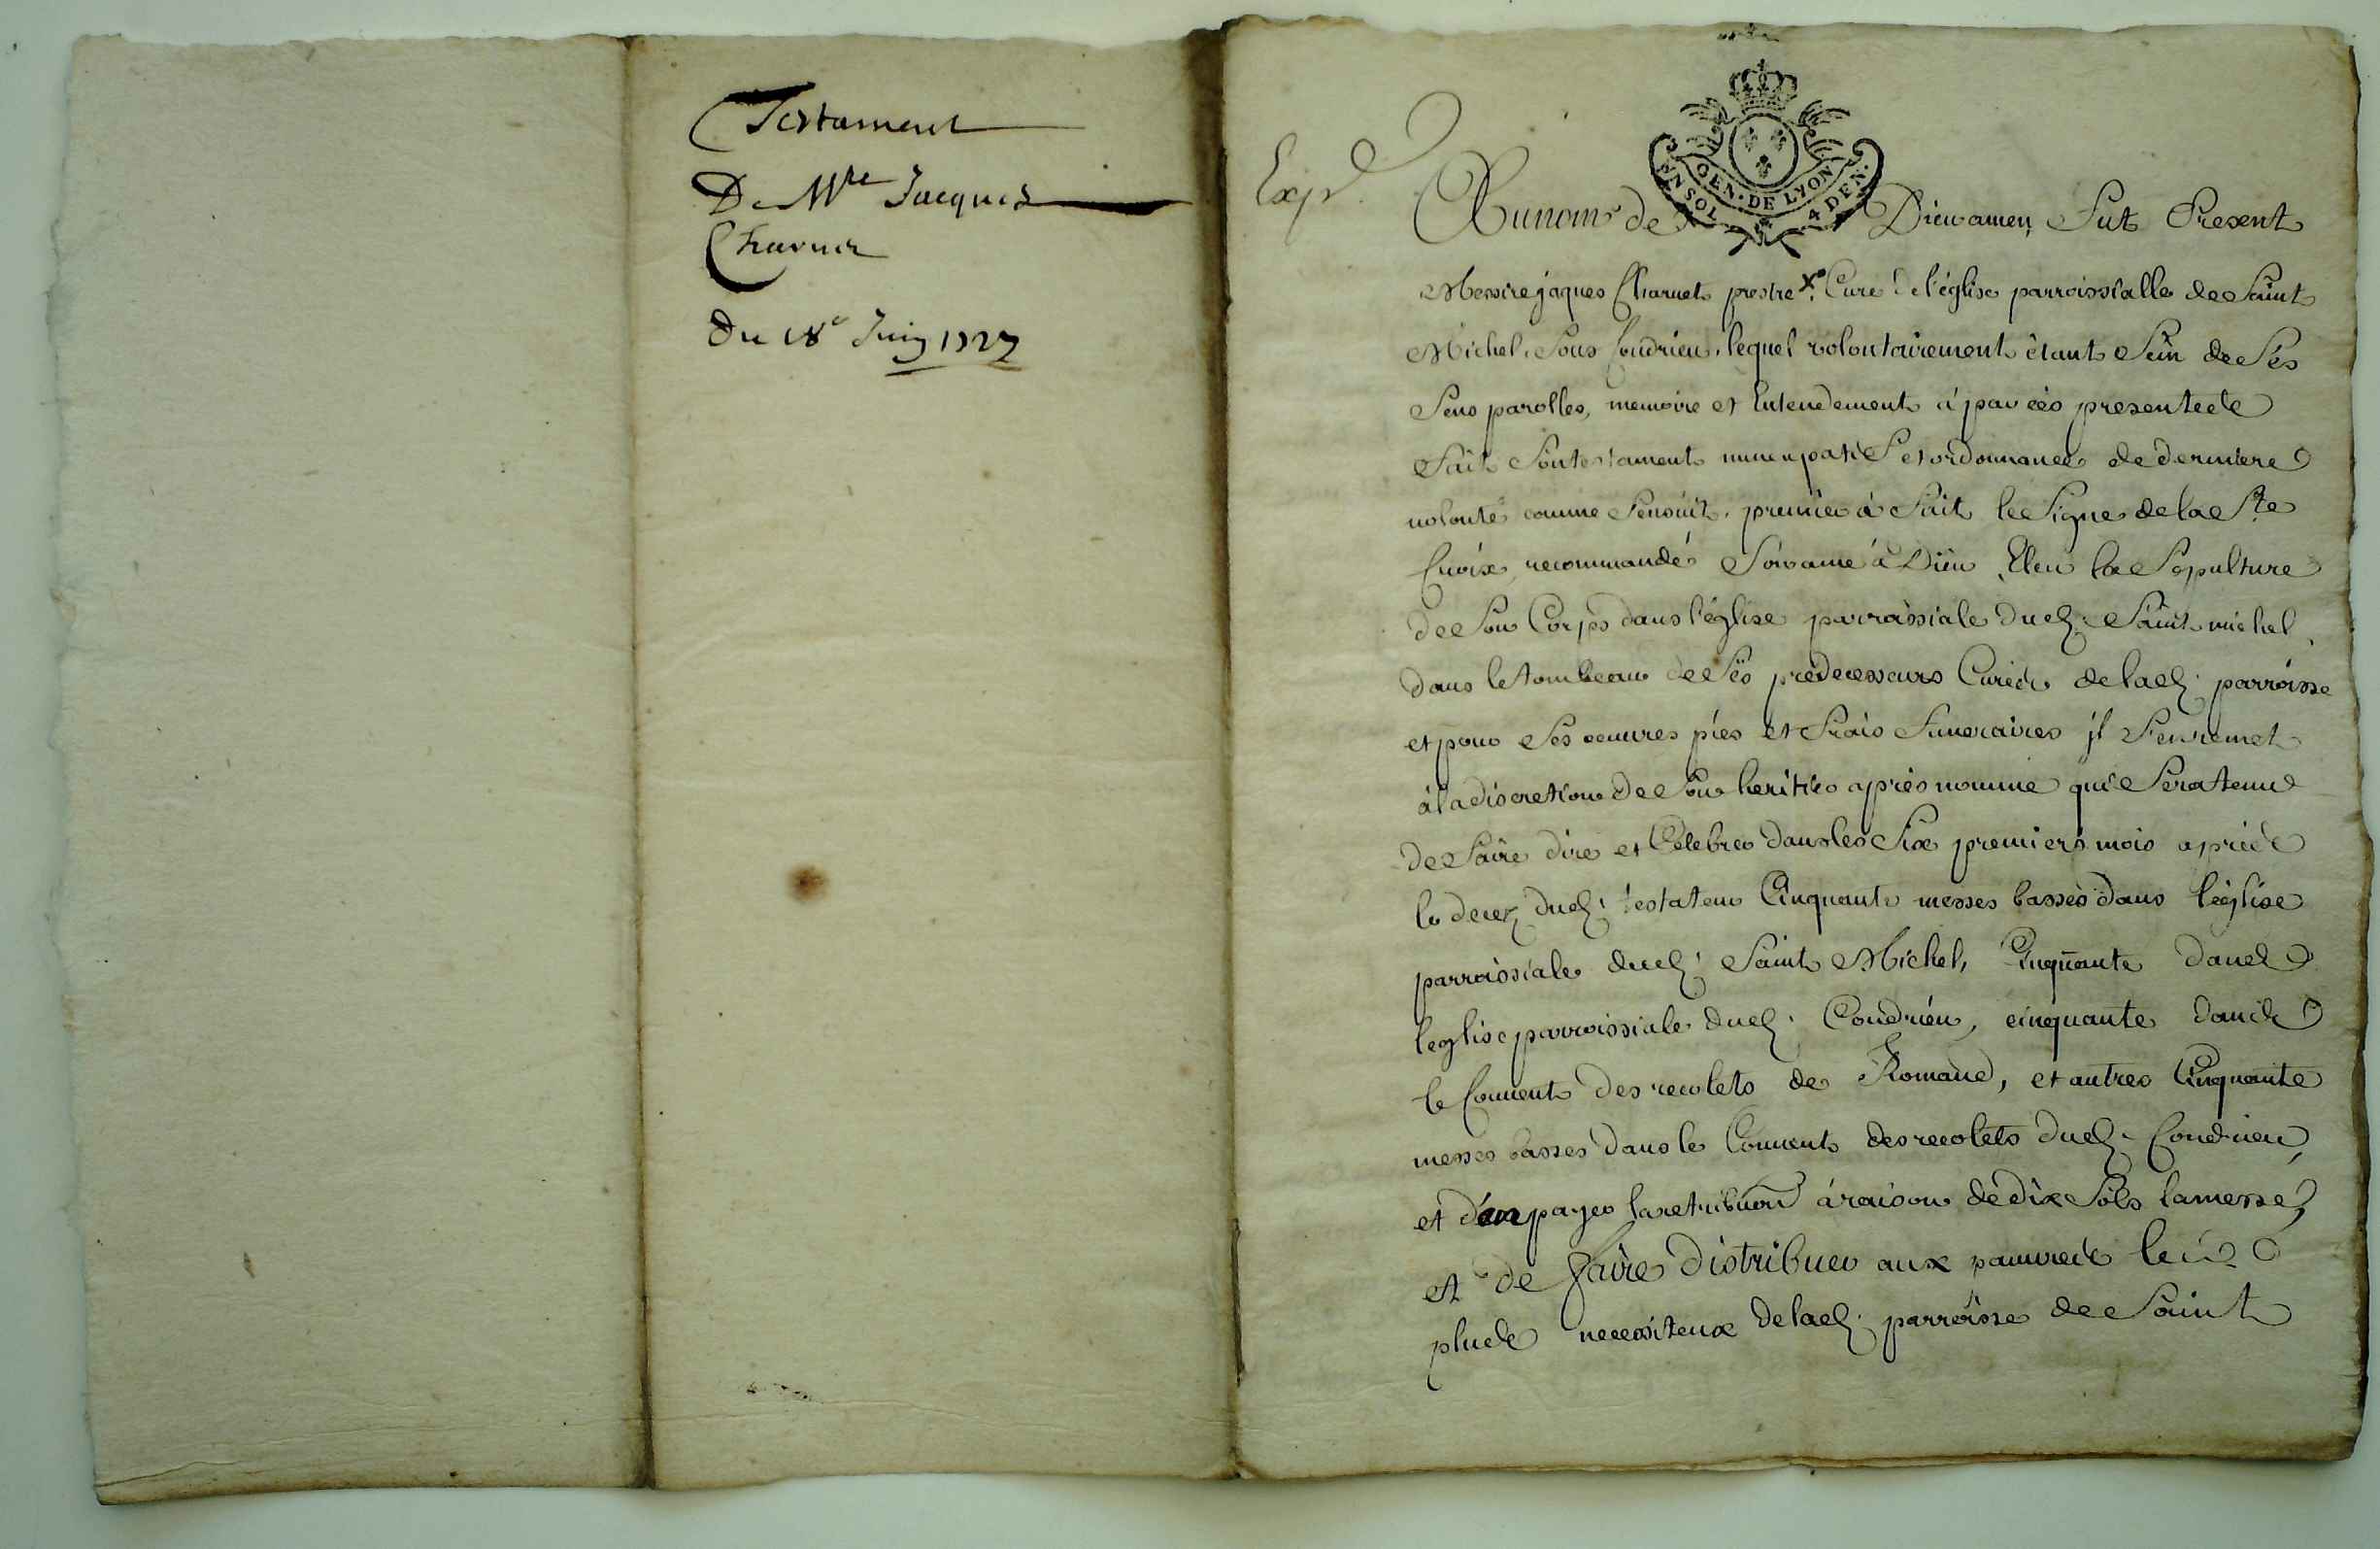 Testament
De Mre Jacques
Charnet
Du 18e Juin 1727
Expd
GEN. DE LYON
UN SOL 4 DEN.
Au nom de Dieu amen, Fut Present
Messire jaques Charnet prestre Curé de l'église parroissialle de Saint
Michel Sous Condrieu, lequel volontairement étant Sein de Sés
Sens parolles, memoire et Entendement à par cés presentes
Fait Son testament nuncupatif et ordonnance de derniere
volonté comme Sensuit, premier à Fait le Signe de la Ste
Croix, recommandé Son ame à Dieu, Eleu la Sepulture
de Son Corps dans l'église parroissiale dud. Saint michel,
dans le tombeau de Sés predecesseurs Curés de lad. parroisse
et pour Ses oeuvres pies et Frais Funeraires jl S'en remet
à la discretion de Son heritier après nommé qui Sera tenu
de Faire dire et Celebrer dans les Six premiers mois après
le decez dud. testateur Cinquante messes basses dans l'église
parroissiale dud. Saint Michel, Cinquante dans
l'eglise parroissiale dud. Condrieu, cinquante dans
le Couvent des recolets de Romans, et autres Cinquante
messes basses dans le Couvent des recolets dud. Condrieu,
et d'en payer la retribuon à raison de dix Sols la messe,
et de faire distribuer aux pauvres les
plus necessiteux de lad. parroisse de Saint